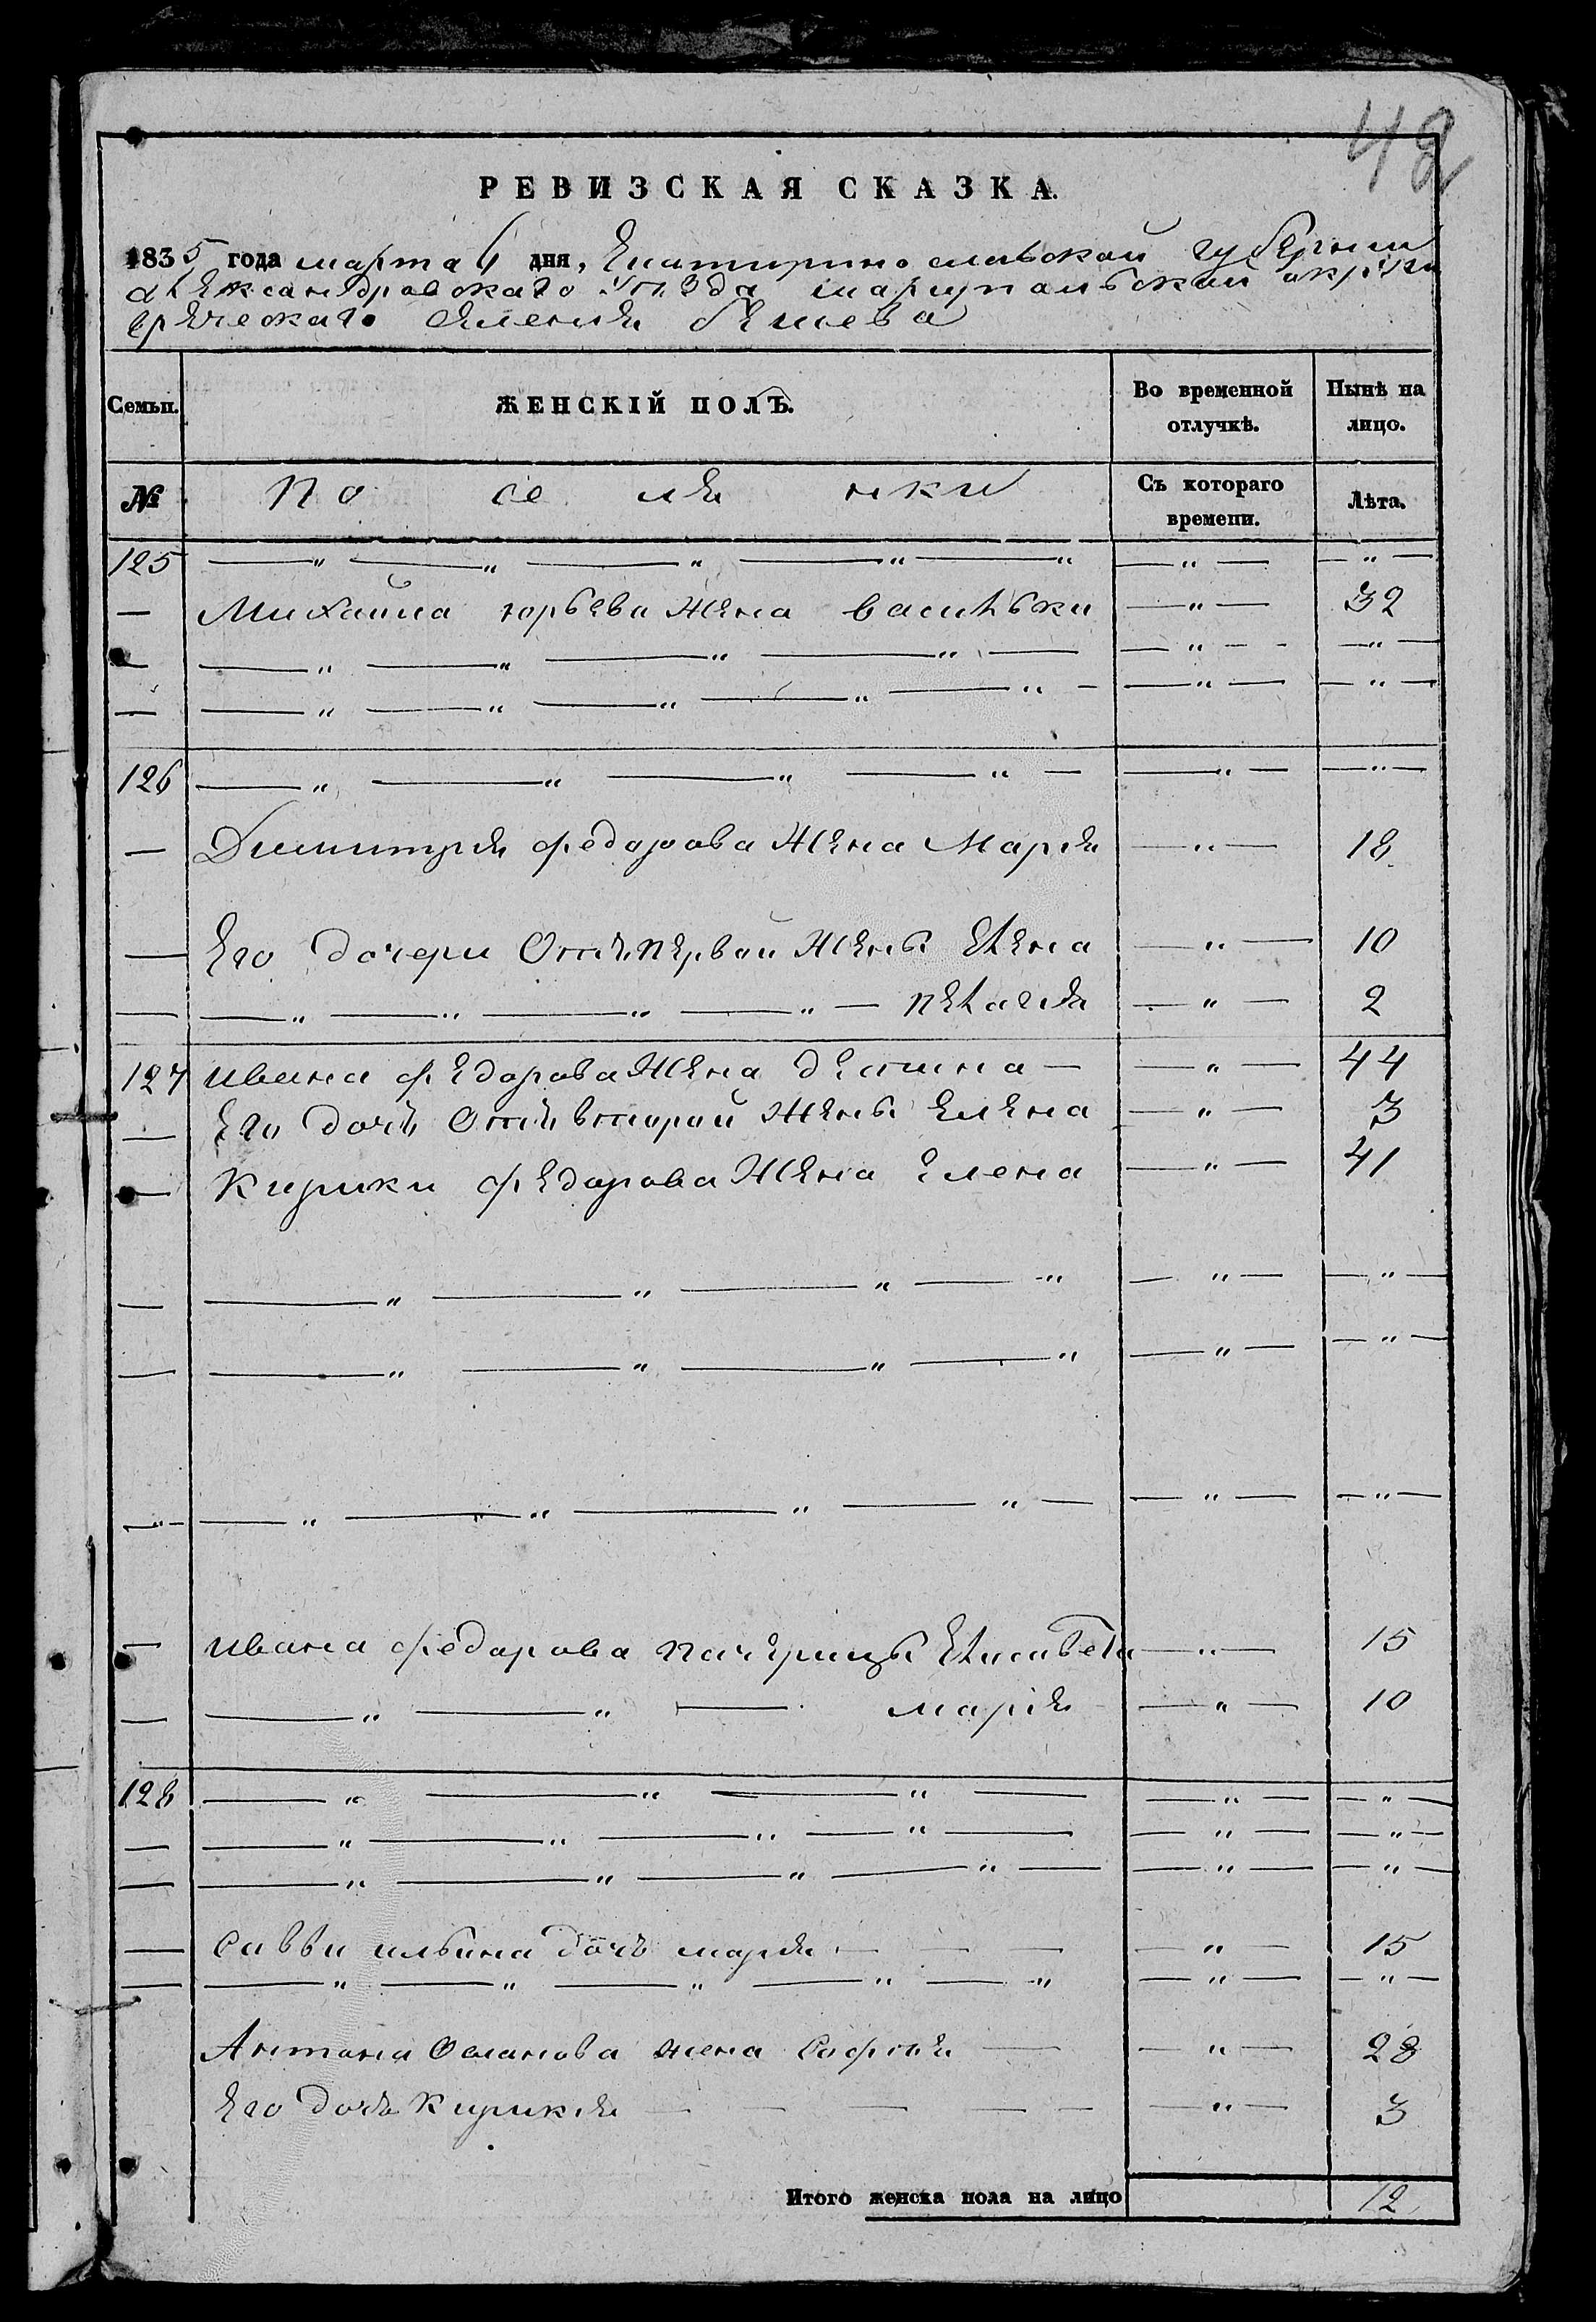 42
РЕВИЗСКАЯ СКАЗКА.
1835 года марта 6 дня, Екатиринославской губернии
Александровскаго уезда мариупальской округи
греческаго селения бешева
Семьи. ЖЕНСКІЙ ПОЛЪ. Во временной отлучкѣ. Нынѣ на лицо.
№ по се ля нки Съ котораго времени. Лѣта.
125 — " — " — " — " — " — " — — " —
— Михайла юрьева жена васильки — " — 32
— — " — " — " — " — — " — — " —
— — " — " — " — " — " — — " — — " —
126 — " — " — " — " — — " — — " —
— Димитрия федорова жена Мария — " — 18
— Его дочери Отъ первой жены Елена — " — 10
— — " — " — " — " — пелагия — " — 2
127 ивана федорова жена деспина — — " — 44
— Его дочь Отъ второй жены Елена — " — 3
— Кирики федорова жена Елена — " — 41
— — " — " — " — " — " — — " —
— — " — " — " — " — " — — " —
— " — — " — " — " — " — — " — — " —
— ивана федарова пачерицы Елисавета — " — 15
— — " — " — мария — " — 10
128 — " — " — " — — " — — " —
— — " — " — " — " — — " — — " —
— — " — " — " — " — — " — — " —
— Савви ильина дочь мария — — — — " — 15
— — " — " — " — " — " — " — — " —
Антона Османова жена София — — " — 28
Его дочь Кирикия — — — — — — " — 3
Итого женска пола на лицо 12